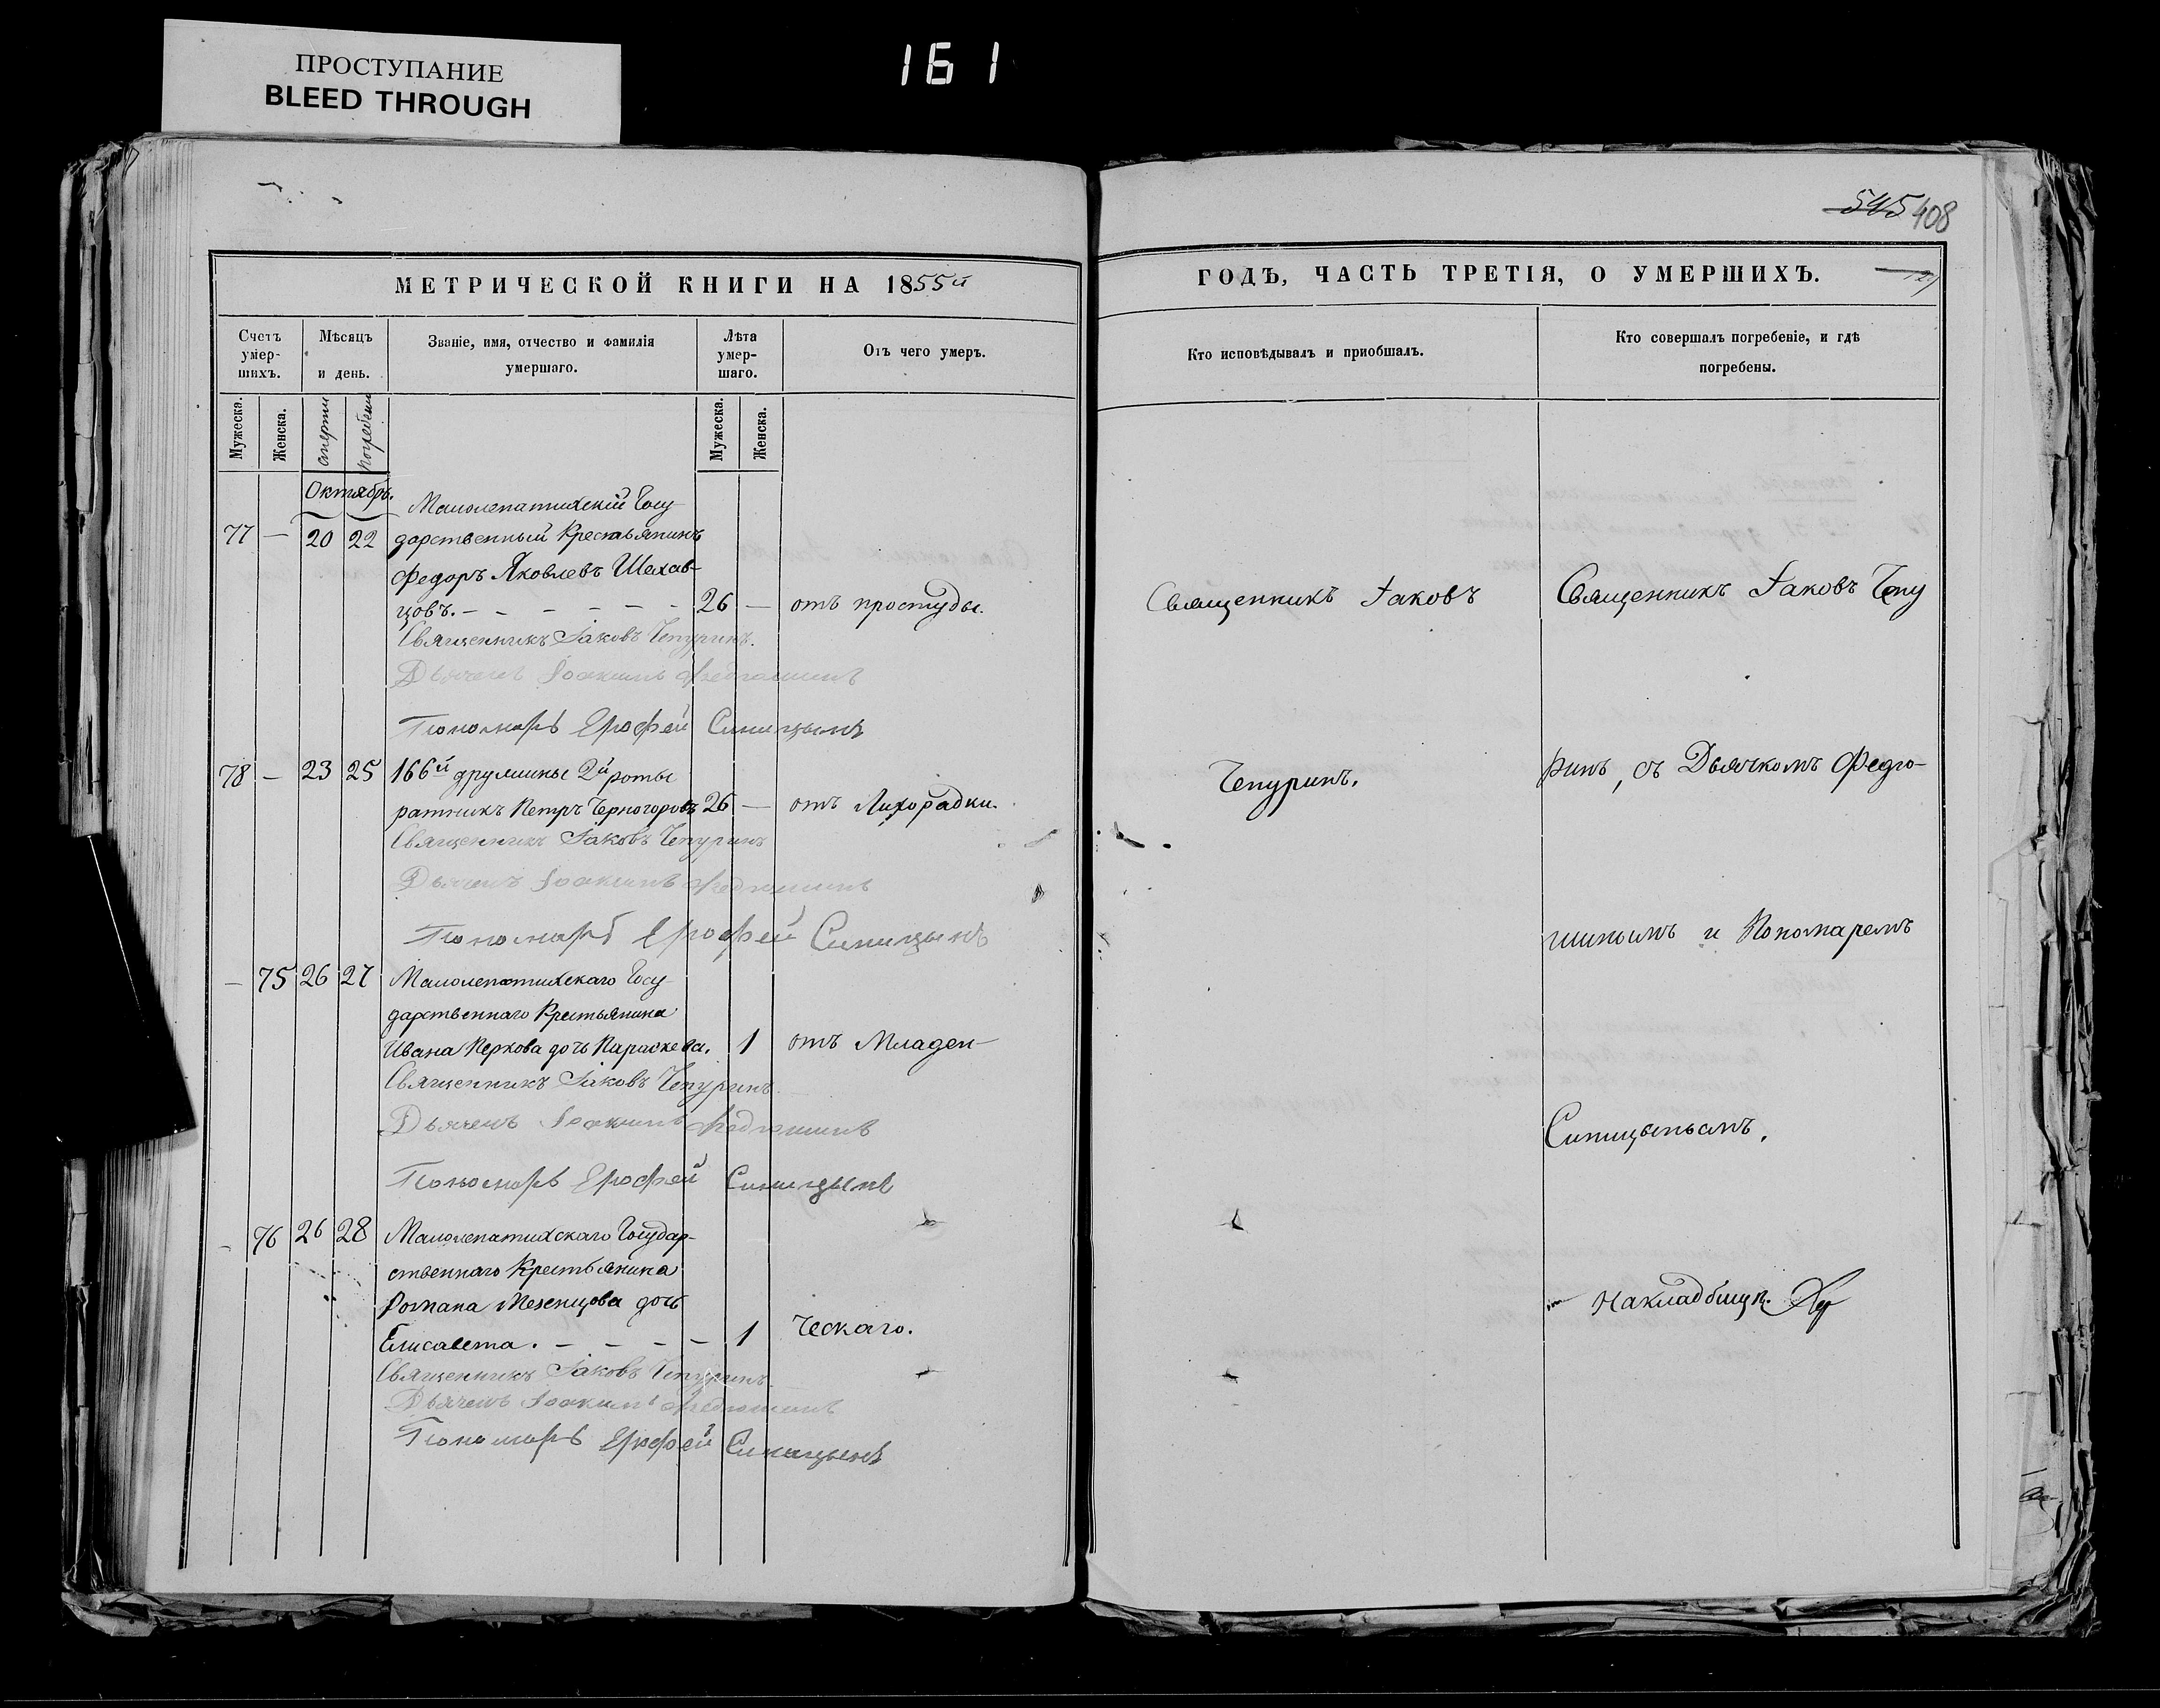 ПРОСТУПАНИЕ
BLEED THROUGH
161
545 408
МЕТРИЧЕСКОЙ КНИГИ НА 1855й
ГОДЪ, ЧАСТЬ ТРЕТІЯ, О УМЕРШИХЪ.
Счетъ умер-шихъ.
Мѣсяцъ и день.
Званіе, имя, отчество и фамилія умершаго.
Лѣта умер-шаго.
Отъ чего умеръ.
Кто исповѣдывалъ и пріобщалъ.
Кто совершалъ погребеніе, и гдѣ погребены.
Мужеска.
Женска.
смерти
погребени
Мужеска.
Женска.
Октябрь.
Малолепатихскій Госу-
77 — 20 22 дарственный Крестьянинъ
Федоръ Яковлевъ Шехав-
цовъ. — — — — — — 26 — отъ простуды.
Священникъ Іаковъ Чепуринъ.
Дьячекъ Іоакимъ Федюшинъ
Пономарь Ерофей Синицынъ
78 — 23 25 166й дружины 2й роты
ратникъ Петръ Черногоровъ 26 — отъ Лихорадки.
Священникъ Іаковъ Чепуринъ
Дьячекъ Іоакимъ Федюшинъ
Пономарь Ерофей Синицынъ
— 75 26 27 Малолепатихскаго Госу-
дарственнаго Крестьянина
Ивана Перкова дочь Параскева. 1 отъ Младен-
Священникъ Іаковъ Чепуринъ
Дьячекъ Іоакимъ Федюшинъ
Пономарь Ерофей Синицынъ
- 76 26 28 Малолепатихскаго Государ-
ственнаго Крестьянина
Романа Мезенцова дочь
Елисавета. — — — — 1 ческаго.
Священникъ Іаковъ Чепуринъ
Дьячекъ Іоакимъ Федюшинъ
Пономарь Ерофей Синицынъ
Священникъ Іаковъ
Чепуринъ.
Священникъ Іаковъ Чепу
ринъ, съ Дьячкомъ Федю-
шинымъ и Пономаремъ
Синицынымъ,
на кладбищѣ.